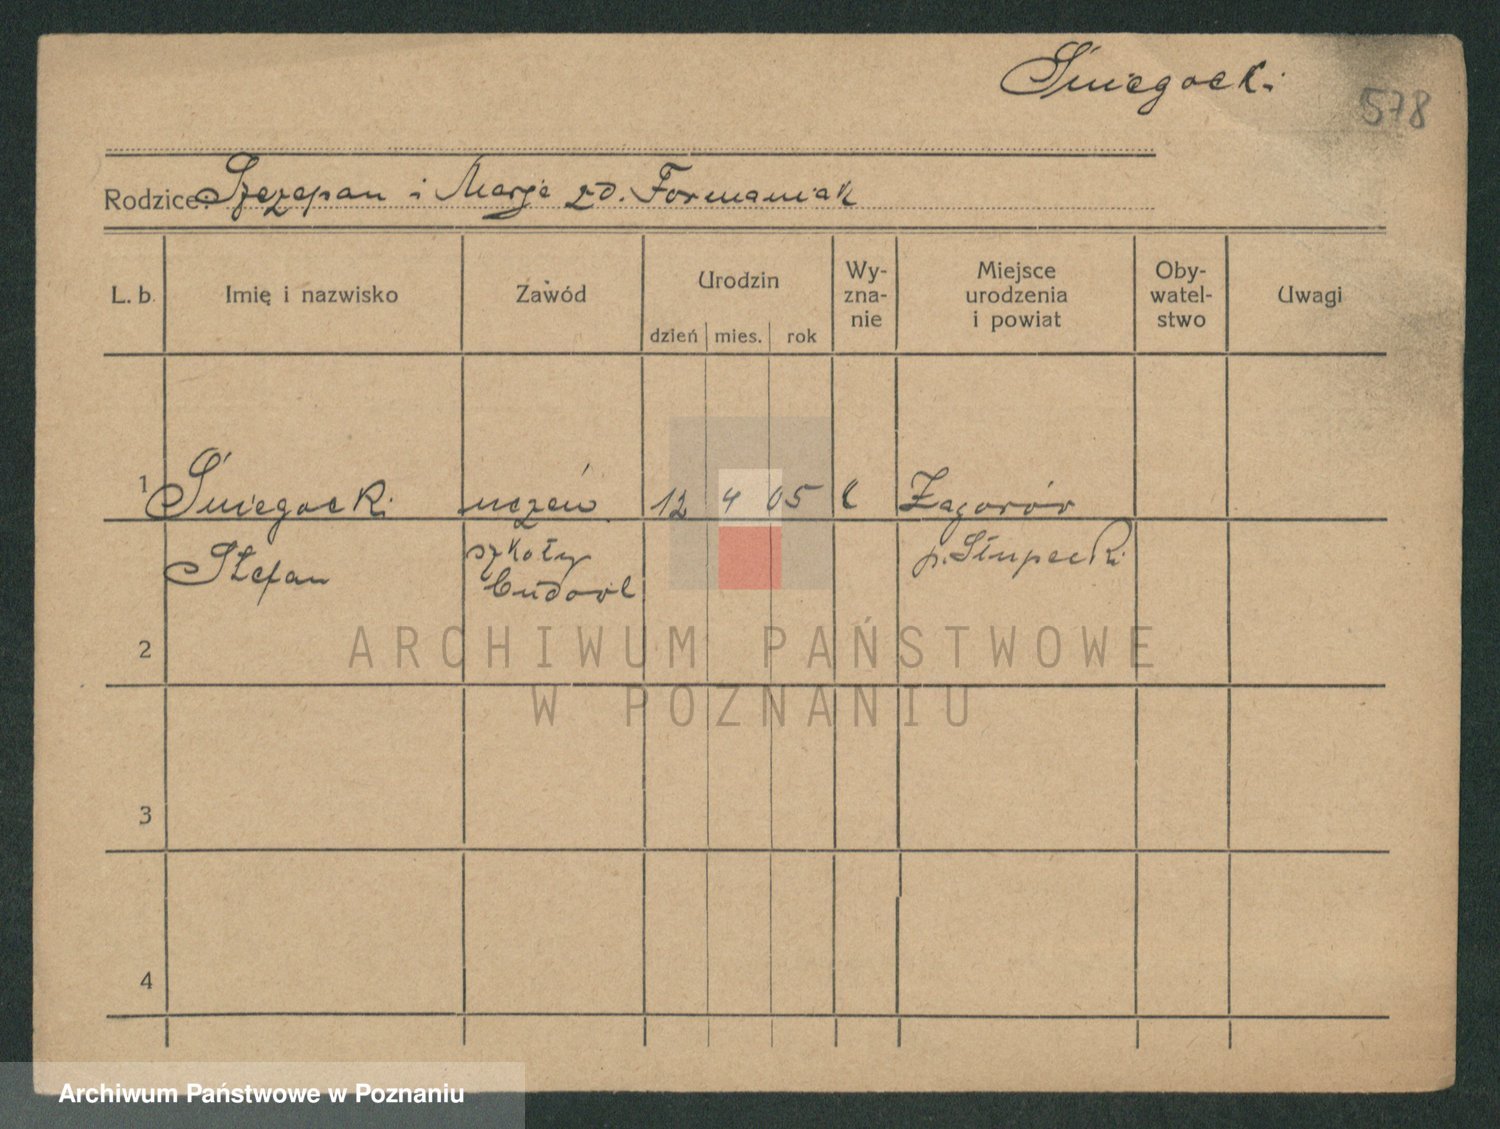 Śniegocki
578
Rodzice: Szczepan i Marja zd. Formaniak
L. b. Imię i nazwisko Zawód Urodzin Wy- Miejsce Oby- Uwagi
zna- urodzenia watel-
nie i powiat stwo
dzień mies. rok
1 Śniegocki uczeń 12 4 05 k Zagorów
Stefan szkoły p. Słupecki
budowl
2
3
4
ARCHIWUM PAŃSTWOWE
W POZNANIU
Archiwum Państwowe w Poznaniu